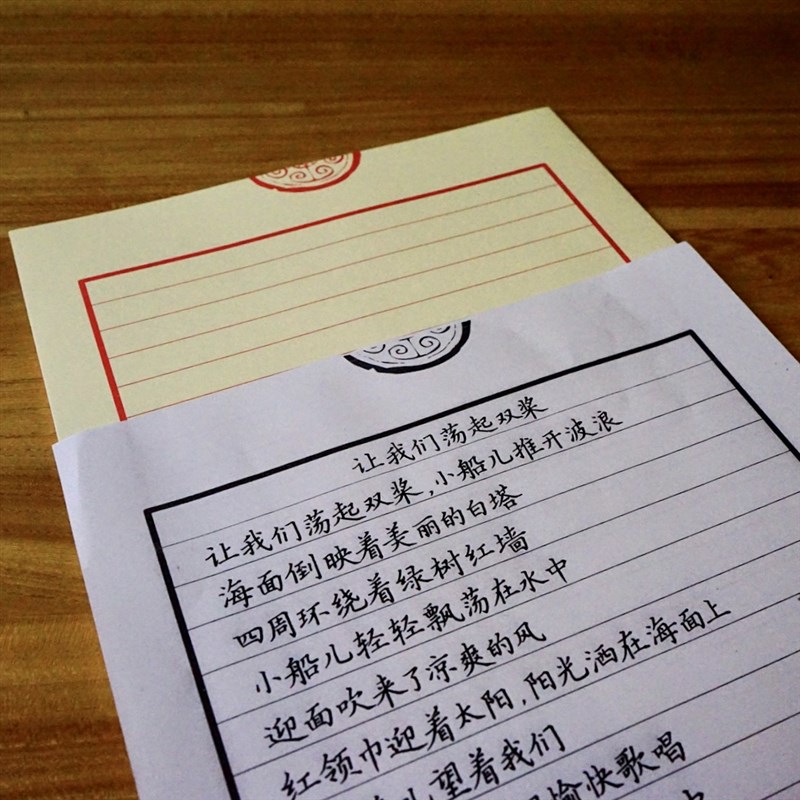 让我们荡起双桨
让我们荡起双桨,小船儿推开波浪
海面倒映着美丽的白塔
四周环绕着绿树红墙
小船儿轻轻飘荡在水中
迎面吹来了凉爽的风
红领巾迎着太阳,阳光洒在海面上
儿望着我们
愉快歌唱